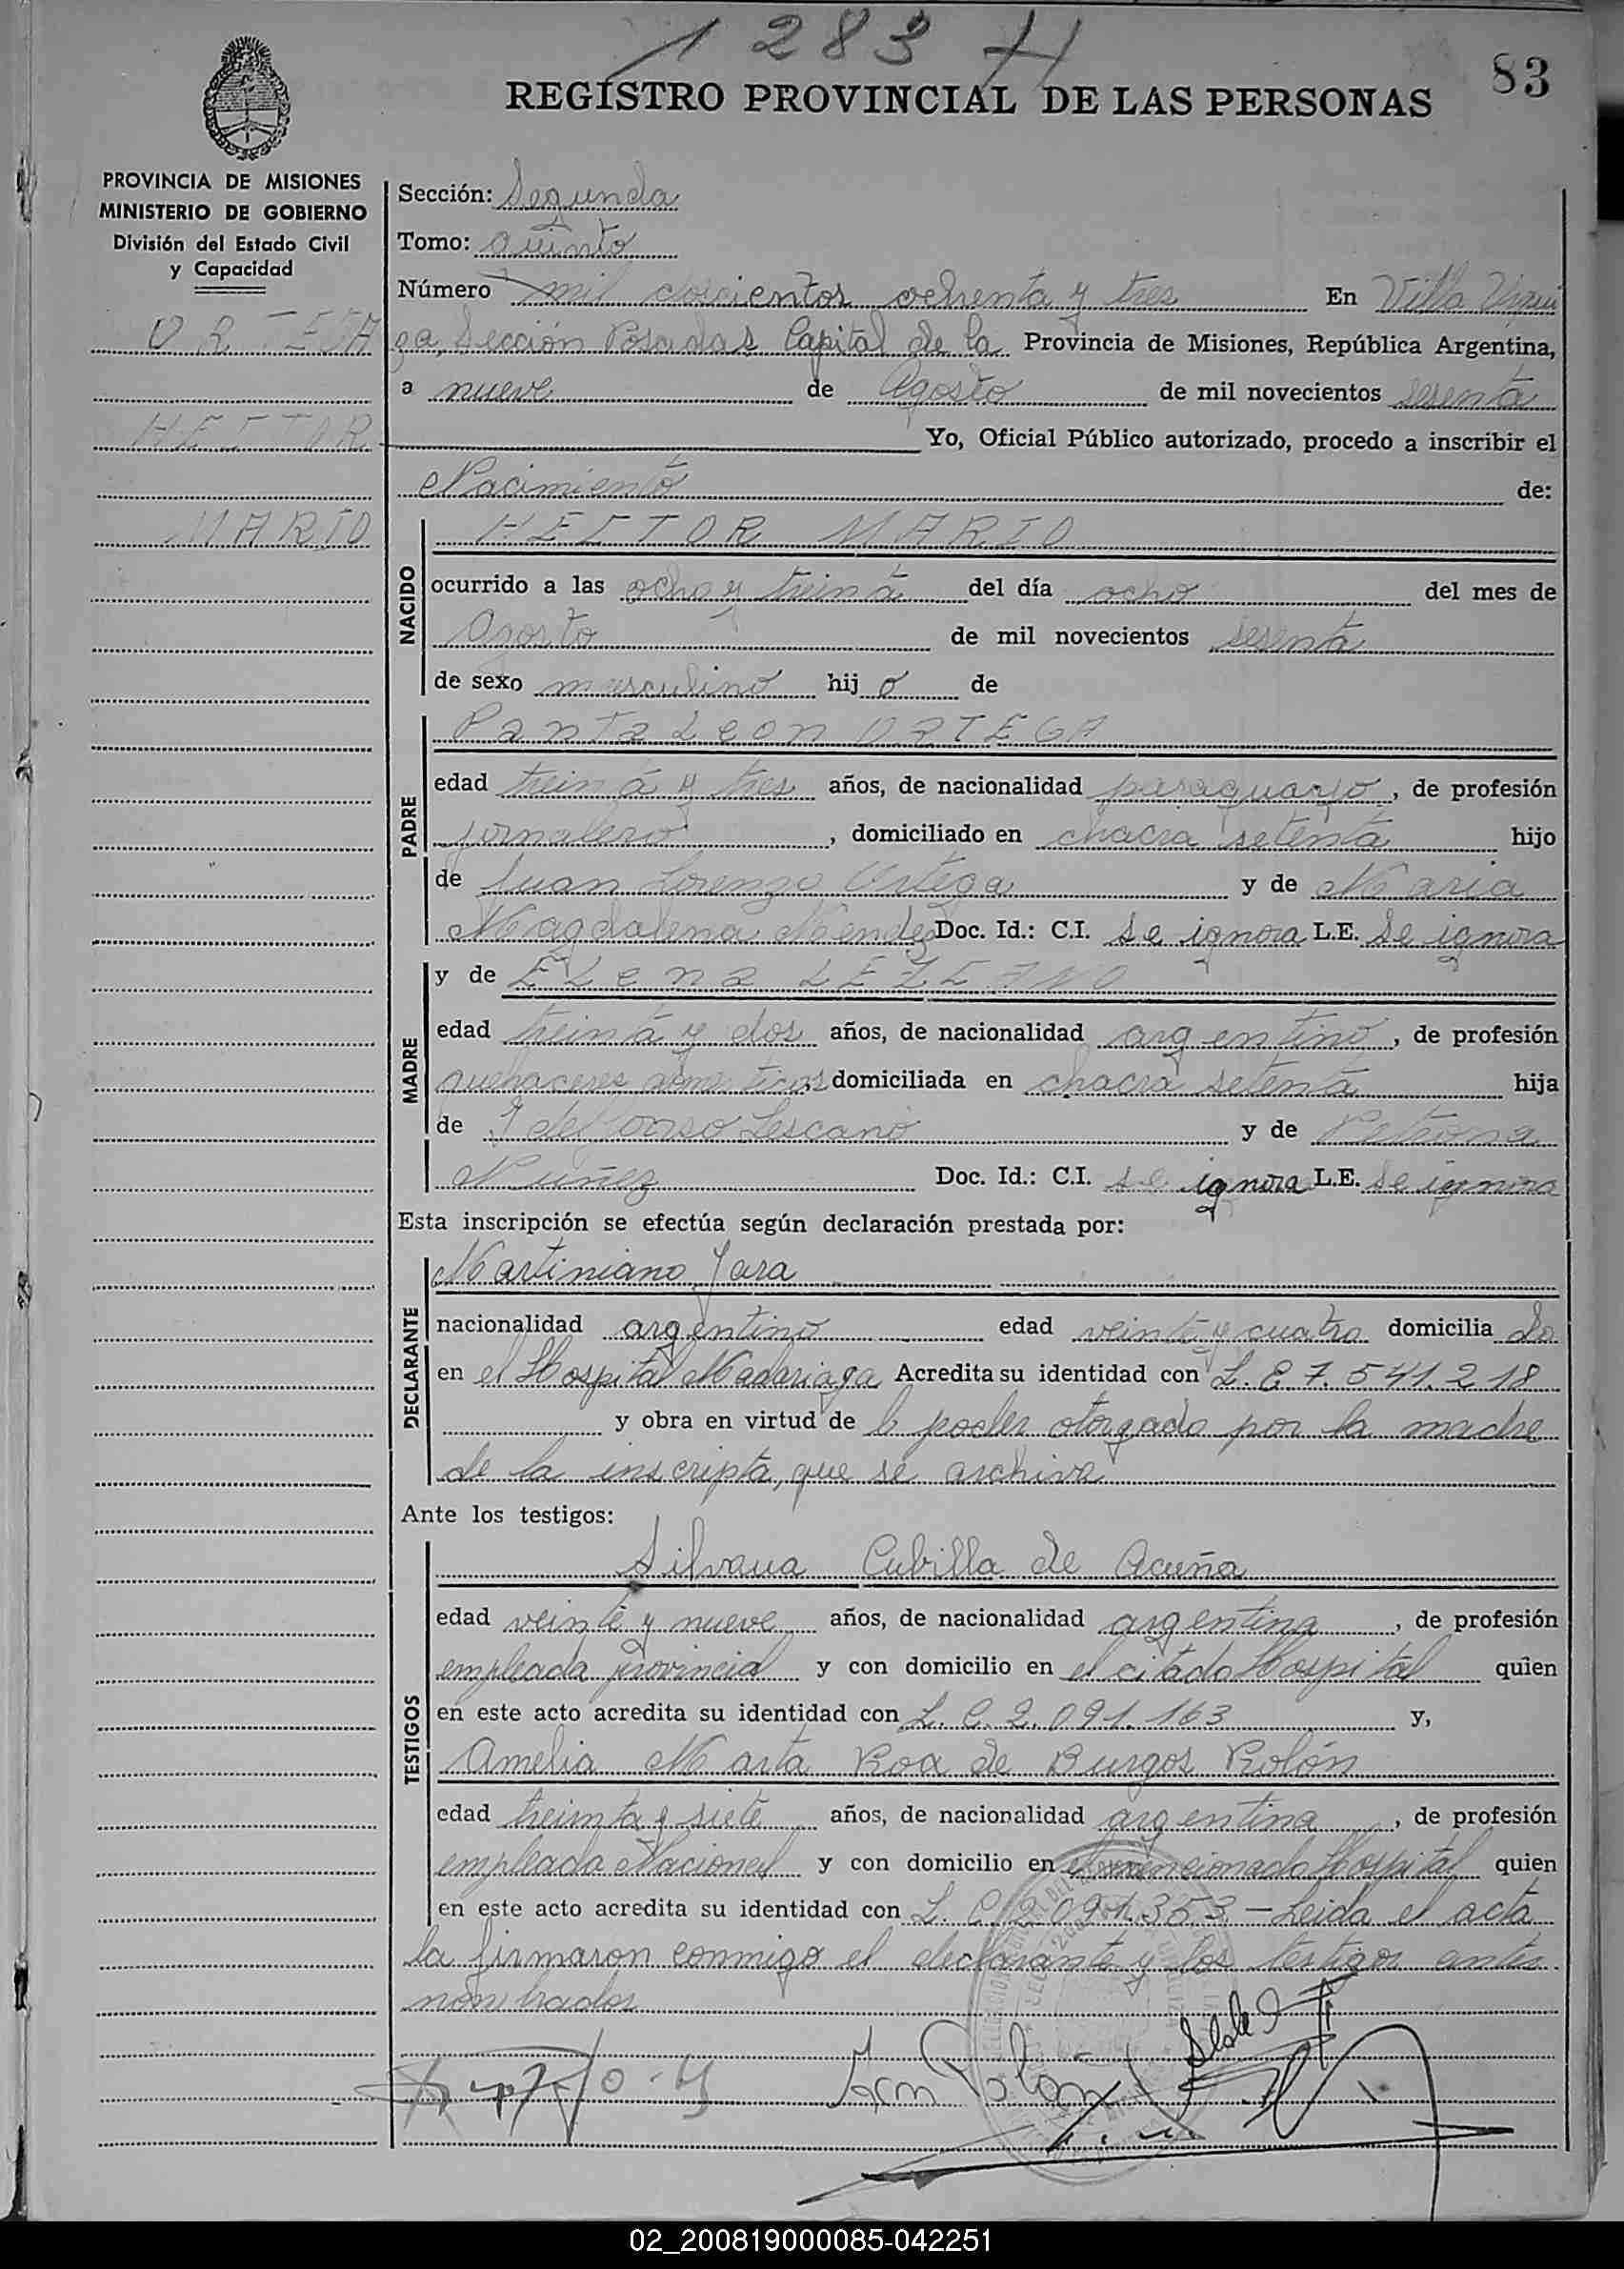 1283 H
83
REGISTRO PROVINCIAL DE LAS PERSONAS
PROVINCIA DE MISIONES
MINISTERIO DE GOBIERNO
División del Estado Civil
y Capacidad
ORTEGA
HECTOR
MARIO
Sección: Segunda
Tomo: Quinto
Número mil doscientos ochenta y tres En Villa Urqui
za, Sección Posadas Capital de la Provincia de Misiones, República Argentina,
a nueve de Agosto de mil novecientos sesenta
Yo, Oficial Público autorizado, procedo a inscribir el
Nacimiento de:
NACIDO
HECTOR MARIO
ocurrido a las ocho y treinta del día ocho del mes de
Agosto de mil novecientos sesenta
de sexo masculino hijo de
PADRE
Pantaleon ORTEGA
edad treinta y tres años, de nacionalidad paraguayo, de profesión
jornalero, domiciliado en chacra setenta hijo
de Juan Lorenzo Ortega y de Maria
Magdalena Mendez Doc. Id.: C.I. se ignora L.E. se ignora
MADRE
y de Elena LEZCANO
edad treinta y dos años, de nacionalidad argentino, de profesión
quehaceres domesticos domiciliada en chacra setenta hija
de Idelfonso Lescano y de Petrona
Nuñez Doc. Id.: C.I. se ignora L.E. se ignora
Esta inscripción se efectúa según declaración prestada por:
DECLARANTE
Martiniano Jara
nacionalidad argentino edad veinte y cuatro domiciliado
en el Hospital Madariaga Acredita su identidad con L. E 7.541.218
y obra en virtud de lo poder otorgado por la madre
de la inscripta, que se archiva
Ante los testigos:
TESTIGOS
Silvana Cubilla de Acuña
edad veinte y nueve años, de nacionalidad argentina, de profesión
empleada provincial y con domicilio en el citado Hospital quien
en este acto acredita su identidad con L. C. 2.091.163 y,
Amelia Marta Roa de Burgos Rolón
edad treinta y siete años, de nacionalidad argentina, de profesión
empleada Nacional y con domicilio en el mencionado Hospital quien
en este acto acredita su identidad con L. C. 2.091.353 - Leida el acta
la firmaron conmigo el declarante y los testigos antes
nombrados
02_200819000085-042251